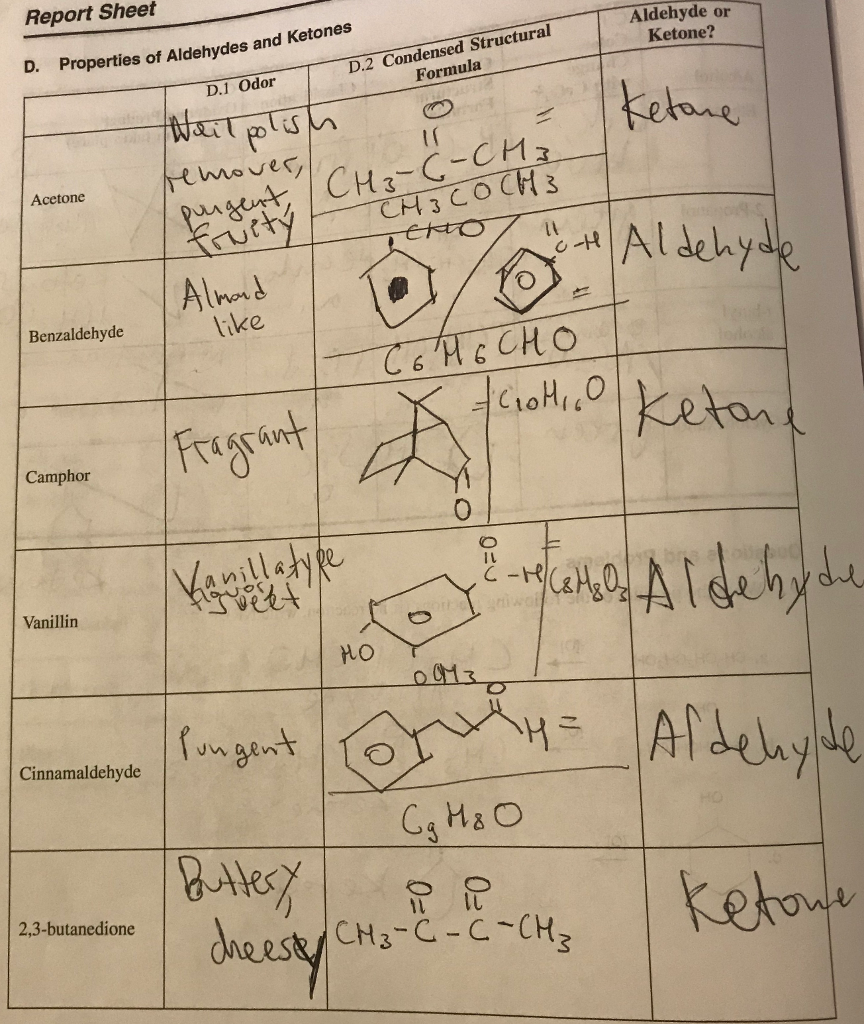 Report Sheet
D. Properties of Aldehydes and Ketones
D.1 Odor
D.2 Condensed Structural
Formula
Aldehyde or
Ketone?
Acetone
Nail polish
remover,
pungent,
fruity
O
CH3-C-CH3 =
CH3COCH3
Ketone
Benzaldehyde
Almond
like
CHO
C-H =
C6H6CHO
Aldehyde
Camphor
Fragrant
O
= C10H16O
Ketone
Vanillin
Vanilla type
sweet
O
C-H
HO
OCH3
= C8H8O3
Aldehyde
Cinnamaldehyde
Pungent
O
H =
C9H8O
Aldehyde
2,3-butanedione
Buttery,
cheesy
O O
CH3-C-C-CH3
Ketone